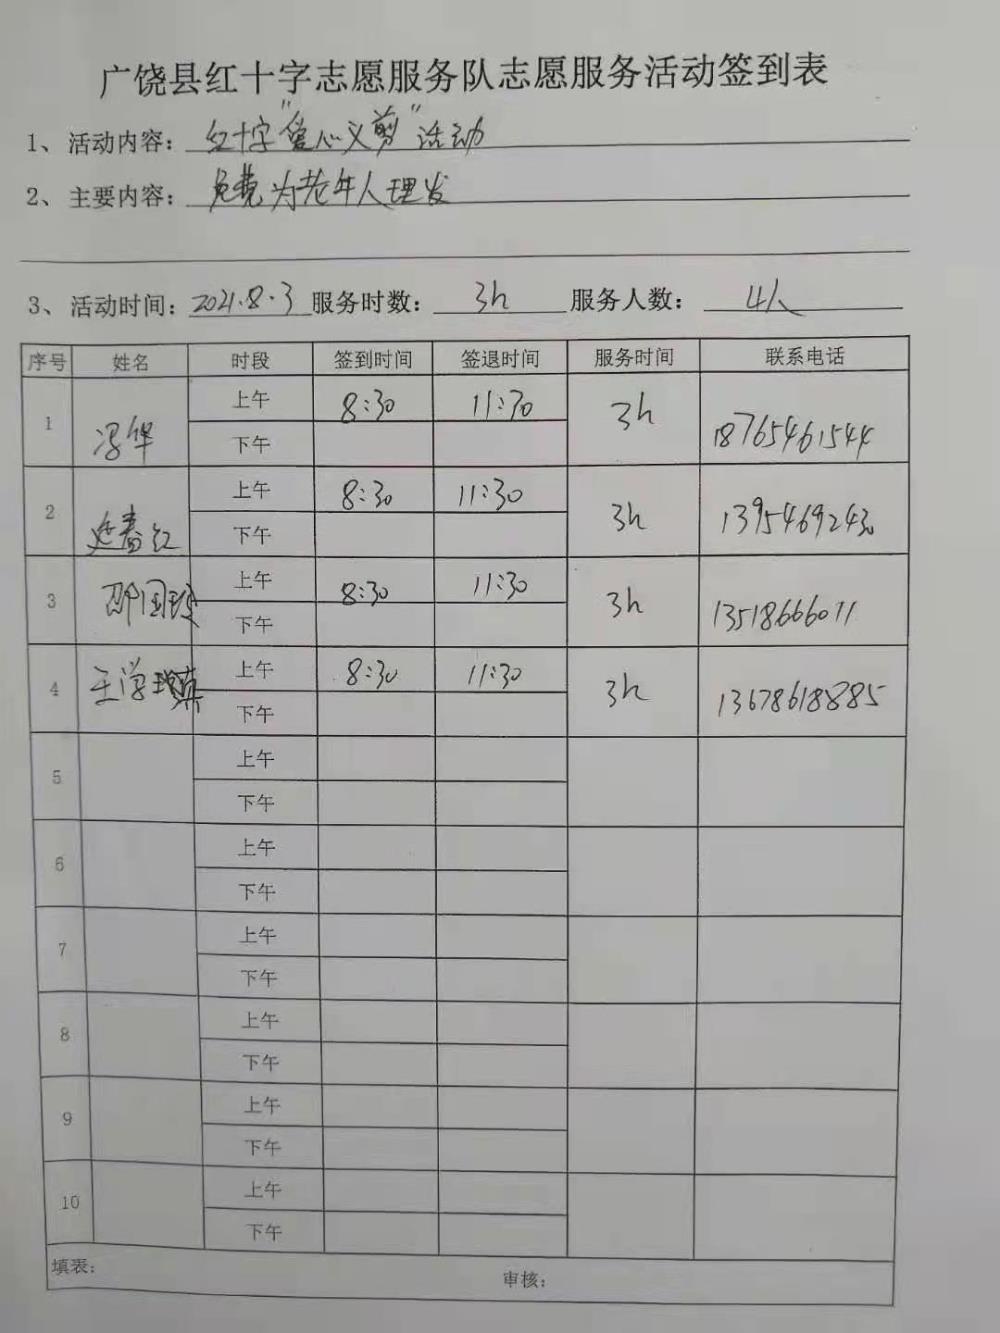 广饶县红十字志愿服务队志愿服务活动签到表
1、活动内容：红十字“爱心义剪”活动
2、主要内容：免费为老年人理发
3、活动时间：2021.8.3 服务时数：3h 服务人数：4人
序号 姓名 时段 签到时间 签退时间 服务时间 联系电话
1 冯华 上午 8:30 11:30 3h 18765461544
下午
2 延春红 上午 8:30 11:30 3h 13954692430
下午
3 邵国 上午 8:30 11:30 3h 13518666011
下午
4 王学 上午 8:30 11:30 3h 13678618885
下午
5 上午
下午
6 上午
下午
7 上午
下午
8 上午
下午
9 上午
下午
10 上午
下午
填表： 审核：